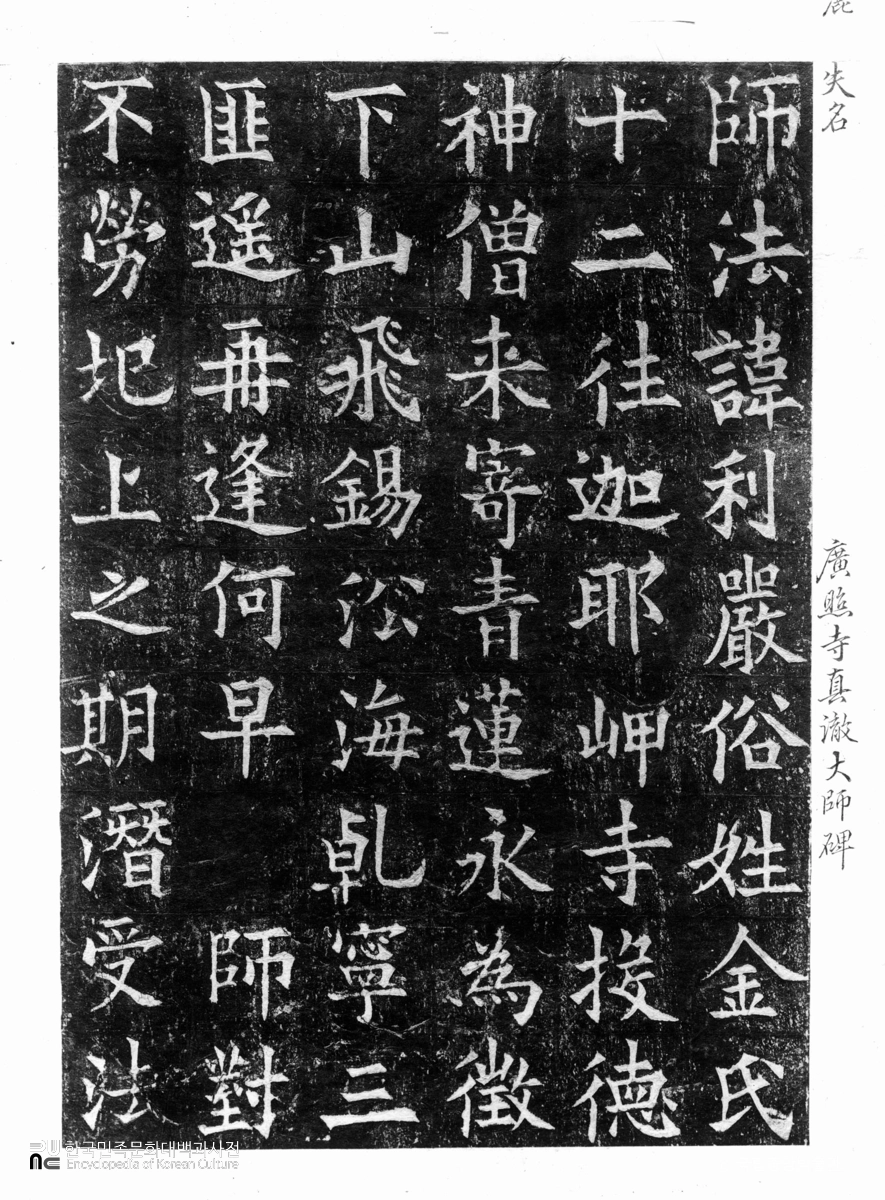 失名
廣照寺真澈大師碑
師法諱利嚴俗姓金氏
十二往迦耶岬寺投德
神僧来寄青蓮永為徵
下山飛錫㳂海乹寧三
匪遥再逢何早 師對
不勞圯上之期潛受法
한국민족문화대백과사전
Encyclopedia of Korean Culture